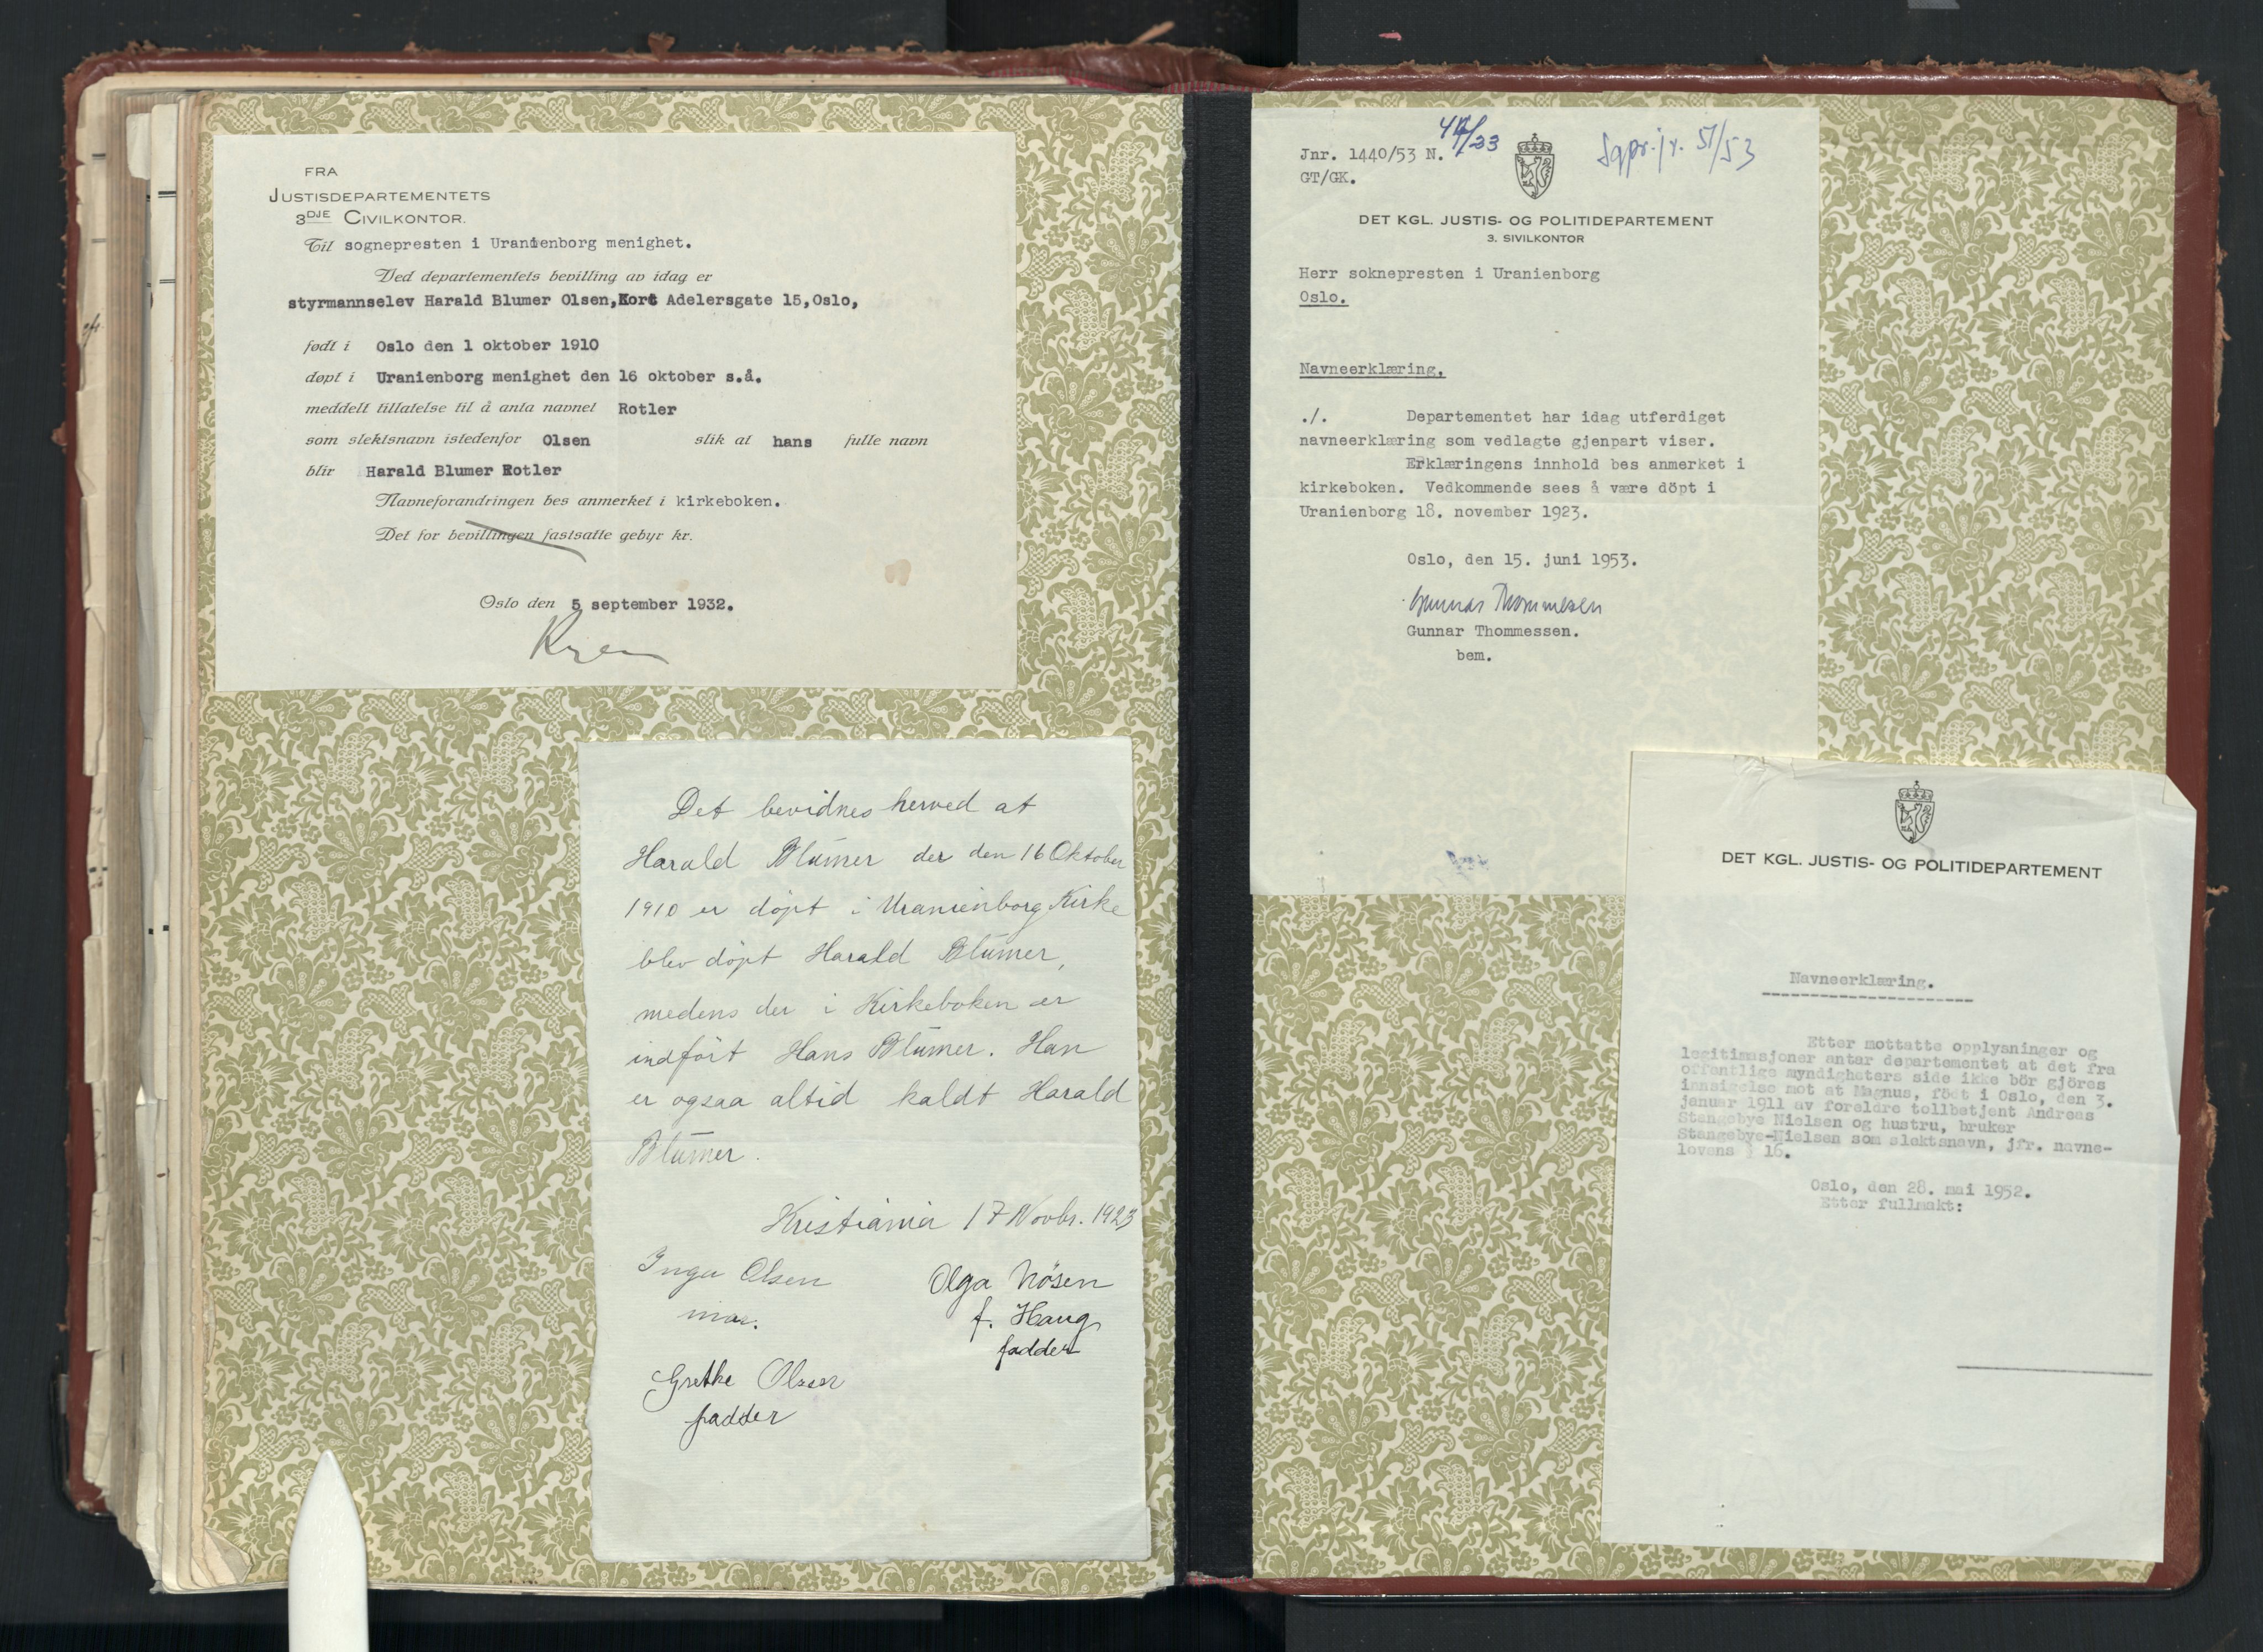 FRA
JUSTISDEPARTEMENTETS
3DJE CIVILKONTOR.
Til sognepresten i Uranienborg menighet.
Ved departementets bevilling av idag er
styrmannselev Harald Blumer Olsen, Kort Adelersgate 15, Oslo,
født i Oslo den 1 oktober 1910
døpt i Uranienborg menighet den 16 oktober s.å.
meddelt tillatelse til å anta navnet Rotler
som slektsnavn istedenfor Olsen slik at hans fulle navn
blir Harald Blumer Rotler
Navneforandringen bes anmerket i kirkeboken.
Det for bevillingen fastsatte gebyr kr.
Oslo den 5 september 1932.
Det bevidnes herved at
Harald Blümer der den 16 Oktober
1910 er døpt i Uranienborg Kirke
blev døpt Harald Blümer,
medens der i Kirkeboken er
indført Hans Blümer. Han
er ogsaa altid kaldt Harald
Blümer.
Kristiania 17 Novbr. 1923
Inga Olsen
mor.
Olga Nøsen
f. Haug
fadder
Grethe Olsen
fadder
Jnr. 1440/53 N.
GT/GK.
51/53
DET KGL. JUSTIS- OG POLITIDEPARTEMENT
3. SIVILKONTOR
Herr soknepresten i Uranienborg
Oslo.
Navneerklæring.
./. Departementet har idag utferdiget
navneerklæring som vedlagte gjenpart viser.
Erklæringens innhold bes anmerket i
kirkeboken. Vedkommende sees å være döpt i
Uranienborg 18. november 1923.
Oslo, den 15. juni 1953.
Gunnar Thommessen
Gunnar Thommessen.
bem.
DET KGL. JUSTIS- OG POLITIDEPARTEMENT
Navneerklæring.
Etter mottatte opplysninger og
legitimasjoner antar departementet at det fra
offentlige myndigheters side ikke bör gjöres
innsigelse mot at Magnus, födt i Oslo, den 3.
januar 1911 av foreldre tollbetjent Andreas
Stangebye Nielsen og hustru, bruker
Stangebye-Nielsen som slektsnavn, jfr. navne-
lovens § 16.
Oslo, den 28. mai 1952.
Etter fullmakt: